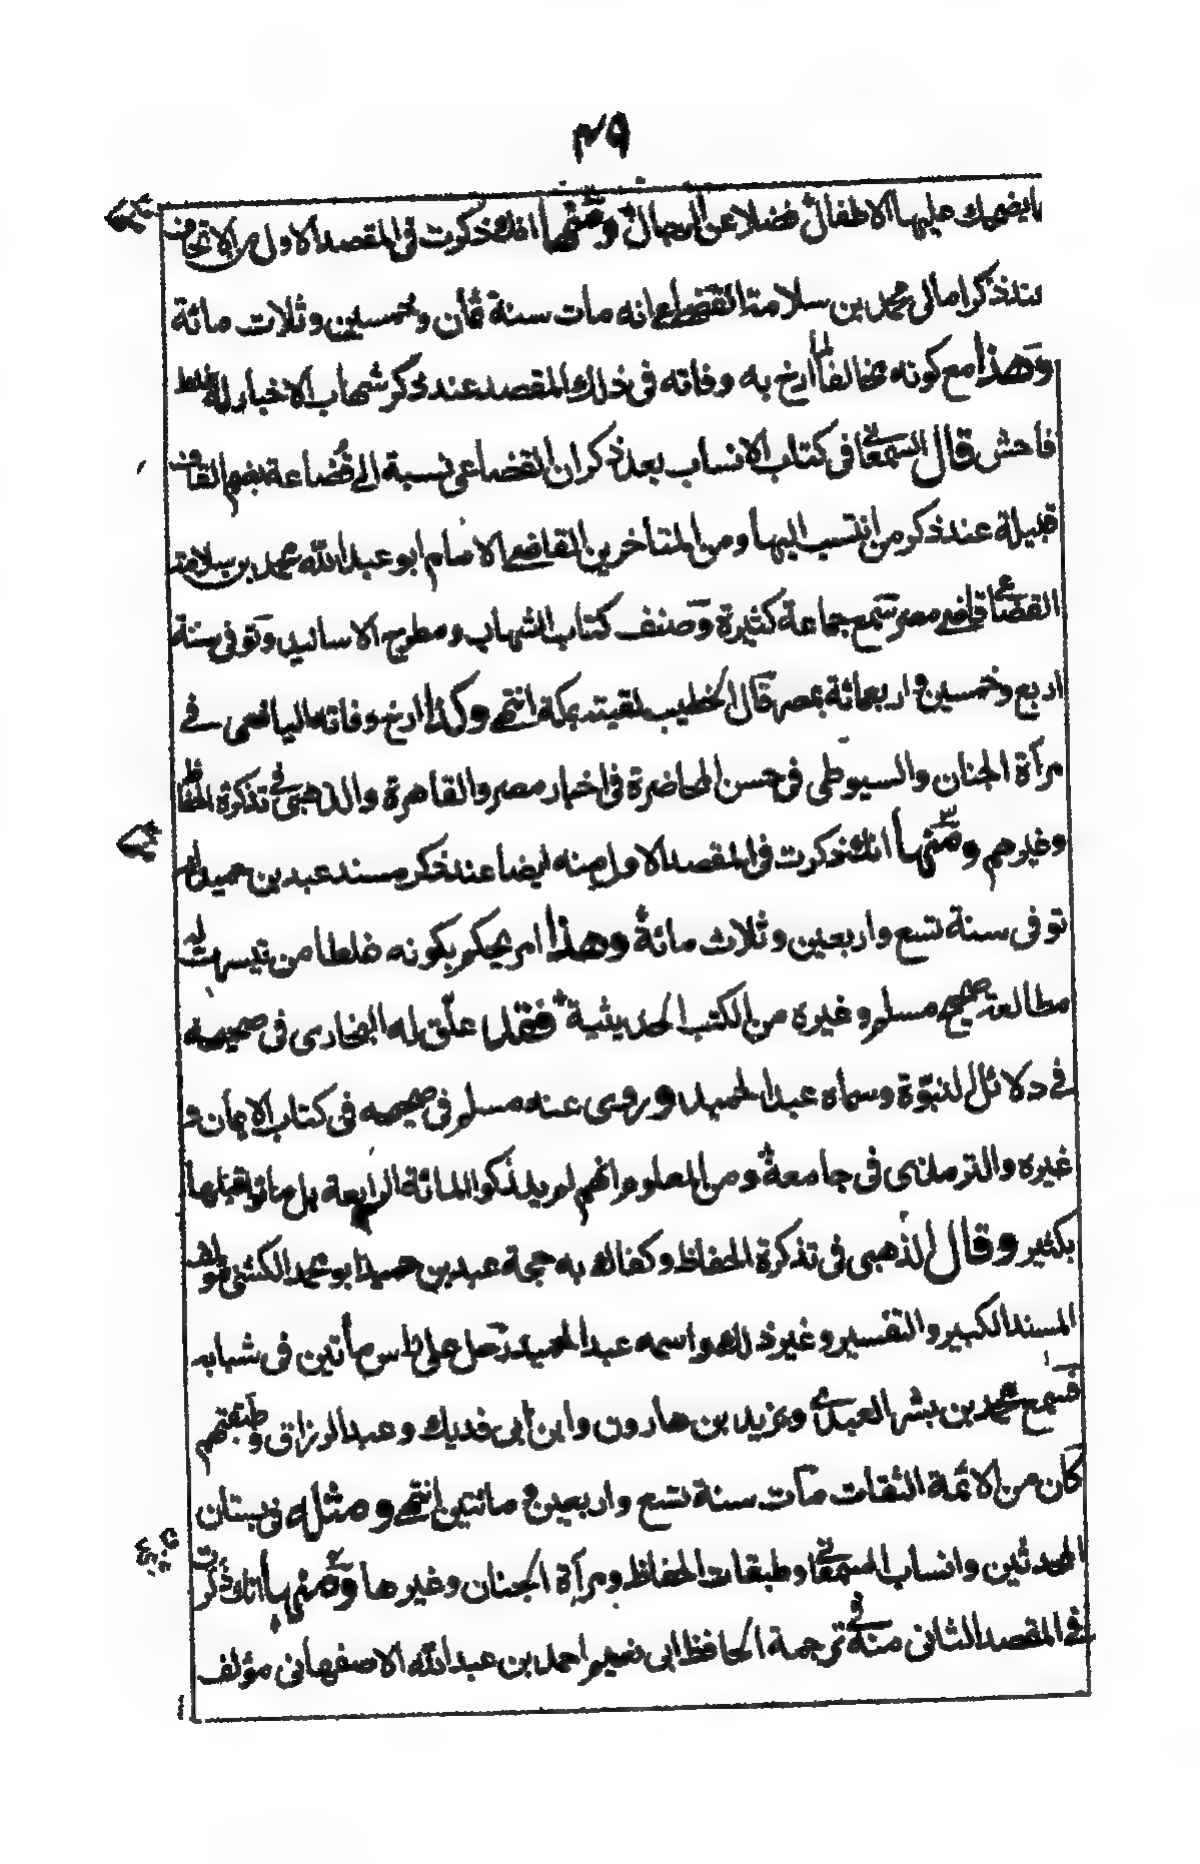 ٤٩
ما يضحك عليها الاطفال فضلا عن الرجال ومنها انك ذكرت فى المقصد الاول من الاتحاف
عند ذكر امالى محمد بن سلامة القضاعى انه مات سنة ثمان وخمسين وثلاث مائة
وهذا مع كونه مخالفا لما ارخ به وفاته فى ذلك المقصد عند ذكر شهاب الاخبار له غلط
فاحش قال السمعانى فى كتاب الانساب بعد ذكر ان القضاعى نسبة الى قضاعة بضم القاف
قبيلة عند ذكر من انتسب اليها ومن المتأخرين القاضى الامام ابو عبد الله محمد بن سلامة
القضاعى قاضى مصر سمع جماعة كثيرة وصنف كتاب الشهاب ومطرح الاسانيد وتوفى سنة
اربع وخمسين و اربعمائة بمصر قال الخطيب لقيته بمكة انتهى وكذا ارخ وفاته اليافعى فى
مرآة الجنان والسيوطى فى حسن المحاضرة فى اخبار مصر والقاهرة والذهبى فى تذكرة الحفاظ
وغيرهم ومنها انك ذكرت فى المقصد الاول منه ايضا عند ذكر مسند عبد بن حميد انه
توفى سنة تسع واربعين وثلاث مائة وهذا امر يحكم بكونه غلطا من تيسرت له
مطالعة صحيح مسلم وغيره من الكتب الحديثية فقد علّق له البخارى فى صحيحه
فى دلائل النبوّة وسماه عبد الحميد وروى عنه مسلم فى صحيحه فى كتاب الايمان و
غيره والترمذى فى جامعه ومن المعلوم انهم لم يدركوا المائة الرابعة بل ماتوا قبلها
بكثير وقال الذهبى فى تذكرة الحفاظ وكفاك به حجة عبد بن حميد ابو محمد الكشى مؤلف
المسند الكبير والتفسير وغير ذلك واسمه عبد الحميد رحل على راس مأتين فى شبابه
فسمع محمد بن بشر العبدى ويزيد بن هارون وابن ابى فديك وعبد الرزاق وطبقتهم
كان من الائمة الثقات مات سنة تسع واربعين و مائتين انتهى ومثله فى بستان
المحدثين وانساب السمعانى وطبقات الحفاظ ومرآة الجنان وغيرها ومنها انك ذكرت
فى المقصد الثانى منه فى ترجمة الحافظ ابى نعيم احمد بن عبد الله الاصفهانى مؤلف